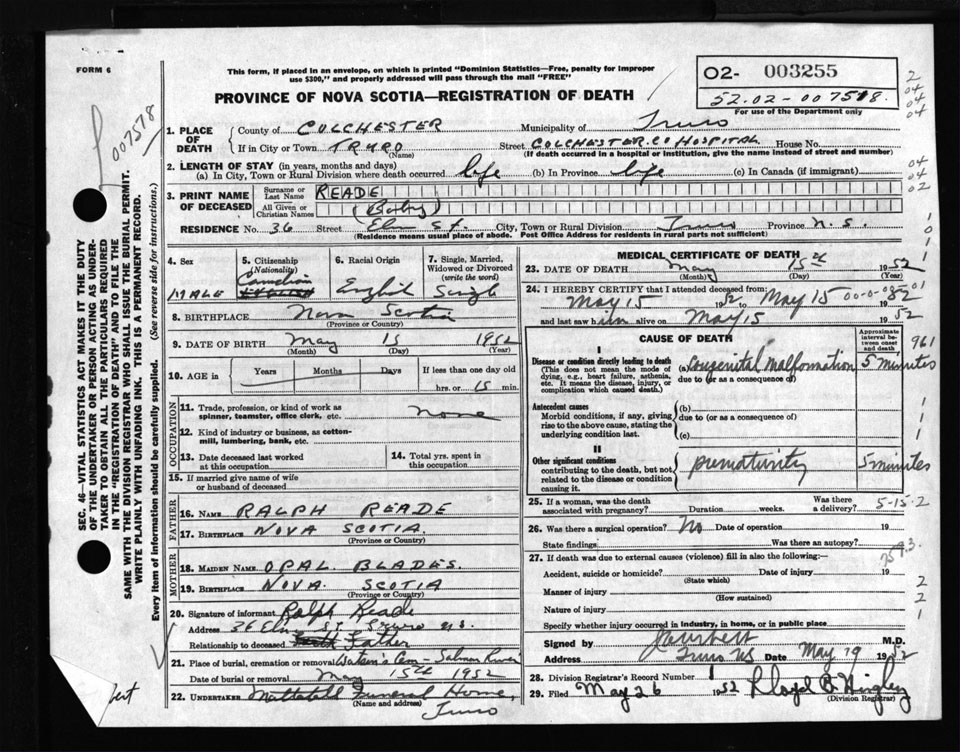 FORM 6
This form, if placed in an envelope, on which is printed "Dominion Statistics—Free, penalty for improper
use $300," and properly addressed will pass through the mail "FREE"
02- 003255
52.02-007518.
For use of the Department only
PROVINCE OF NOVA SCOTIA—REGISTRATION OF DEATH
007518
1. PLACE OF DEATH
County of COLCHESTER Municipality of Truro
If in City or Town TRURO (Name) Street COLCHESTER.CO HOSPITAL House No.
(If death occurred in a hospital or institution, give the name instead of street and number)
2. LENGTH OF STAY (in years, months and days)
(a) In City, Town or Rural Division where death occurred life (b) In Province life (c) In Canada (if immigrant)
3. PRINT NAME OF DECEASED
Surname or Last Name READE
All Given or Christian Names (Baby)
RESIDENCE No. 36 Street Elm St. City, Town or Rural Division Truro Province N.S.
(Residence means usual place of abode. Post Office Address for residents in rural parts not sufficient)
4. Sex MALE
5. Citizenship (Nationality) Canadian
6. Racial Origin English
7. Single, Married, Widowed or Divorced (write the word) Single
8. BIRTHPLACE Nova Scotia
(Province or Country)
9. DATE OF BIRTH May 15 1952
(Month) (Day) (Year)
10. AGE in Years Months Days If less than one day old
hrs. or 15 min.
OCCUPATION
11. Trade, profession, or kind of work as spinner, teamster, office clerk, etc. None
12. Kind of industry or business, as cotton-mill, lumbering, bank, etc.
13. Date deceased last worked at this occupation
14. Total yrs. spent in this occupation
15. If married give name of wife or husband of deceased
FATHER
16. NAME RALPH READE
17. BIRTHPLACE NOVA SCOTIA.
(Province or Country)
MOTHER
18. MAIDEN NAME OPAL BLADES.
19. BIRTHPLACE NOVA. SCOTIA
(Province or Country)
20. Signature of informant Ralph Reade
Address 36 Elm St. Truro N.S.
Relationship to deceased Father
21. Place of burial, cremation or removal Cem - Salmon River
Date of burial or removal May 15th 1952
22. UNDERTAKER Mattatall Funeral Home,
(Name and address) Truro
MEDICAL CERTIFICATE OF DEATH
23. DATE OF DEATH May 15th 1952
(Month) (Day) (Year)
24. I HEREBY CERTIFY that I attended deceased from:
May 15 1952 to May 15 1952
and last saw him alive on May 15 1952
CAUSE OF DEATH
Approximate interval between onset and death
I
Disease or condition directly leading to death
(This does not mean the mode of dying, e.g., heart failure, asthenia, etc. It means the disease, injury, or complication which caused death.)
(a) Congenital Malformation 5 minutes
due to (or as a consequence of)
961
Antecedent causes
Morbid conditions, if any, giving rise to the above cause, stating the underlying condition last.
(b)
due to (or as a consequence of)
(c)
II
Other significant conditions
contributing to the death, but not related to the disease or condition causing it.
prematurity 5 minutes
25. If a woman, was the death associated with pregnancy? Duration weeks. Was there a delivery?
5-15-2
26. Was there a surgical operation? No Date of operation 19
State findings Was there an autopsy?
27. If death was due to external causes (violence) fill in also the following:—
Accident, suicide or homicide? Date of injury 19
(State which)
Manner of injury
(How sustained)
Nature of injury
Specify whether injury occurred in industry, in home, or in public place
Signed by M.D.
Address Truro NS Date May 19 1952
28. Division Registrar's Record Number
29. Filed May 26 1952 Lloyd B.
(Division Registrar)
SEC. 46—VITAL STATISTICS ACT MAKES IT THE DUTY
OF THE UNDERTAKER OR PERSON ACTING AS UNDER-
TAKER TO OBTAIN ALL THE PARTICULARS REQUIRED
IN THE "REGISTRATION OF DEATH" AND TO FILE THE
SAME WITH THE DIVISION REGISTRAR WHO SHALL ISSUE THE BURIAL PERMIT.
WRITE PLAINLY WITH UNFADING INK. THIS IS A PERMANENT RECORD.
Every item of information should be carefully supplied. (See reverse side for instructions.)